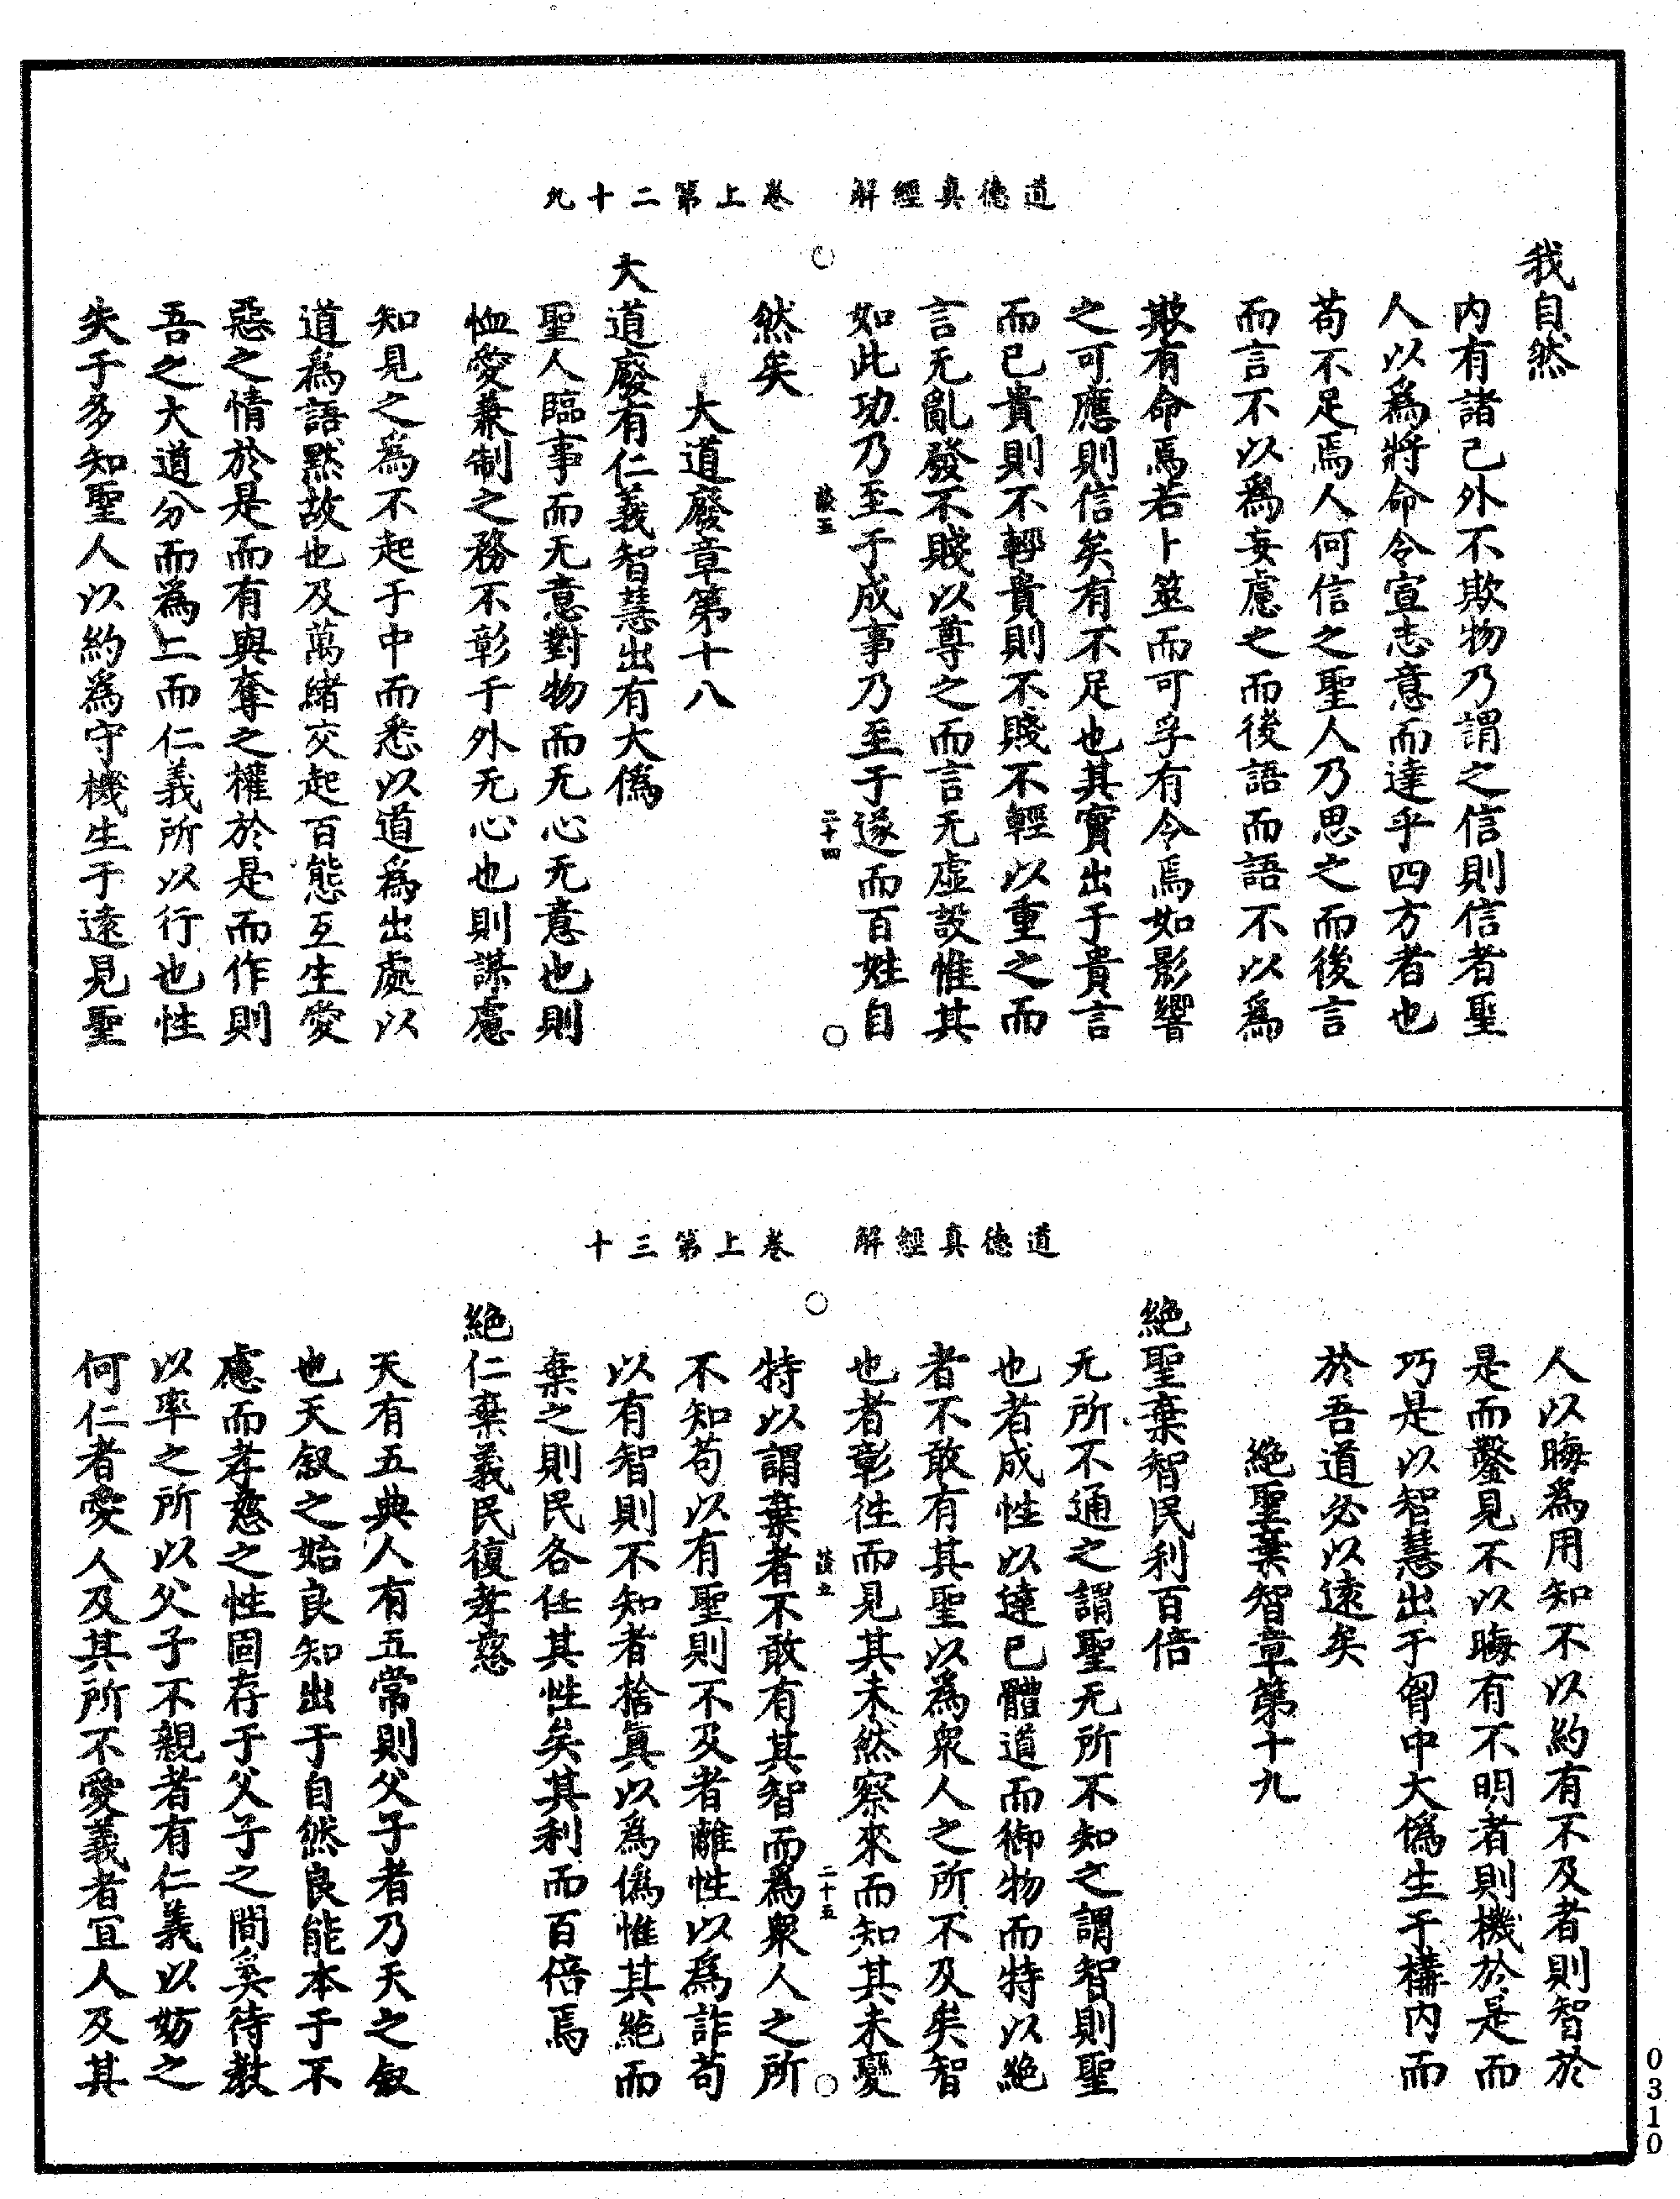 道德真經解　卷上第二十九
我自然
内有諸己外不欺物乃謂之信則信者聖
人以為將命令宣志意而達乎四方者也
苟不足焉人何信之聖人乃思之而後言
而言不以爲妄慮之而後語而語不以爲
欺有命焉若卜筮而可孚有令焉如影響
之可應則信矣有不足也其實出于貴言
而已貴則不輕貴則不賤不輕以重之而
言无亂發不賤以尊之而言无虛設惟其
如此功乃至于成事乃至于遂而百姓自
二十四
然矣
大道廢章第十八
大道廢有仁義智慧出有大僞
聖人臨事而无意對物而无心无意也則
恤愛兼制之務不彰于外无心也則謀慮
知見之爲不起于中而悉以道爲出處以
道爲語默故也及萬緒交起百態互生愛
惡之情於是而有與奪之權於是而作則
吾之大道分而為二而仁義所以行也性
失于多知聖人以約為守機生于遠見聖
道德真經解　卷上第三十
人以晦為用知不以約有不及者則智於
是而鑿見不以晦有不明者則機於是而
巧是以智慧出于胷中大僞生于構内而
於吾道必以遠矣
絶聖棄智章第十九
絶聖棄智民利百倍
无所不通之謂聖无所不知之謂智則聖
也者成性以達已體道而御物而特以絶
者不敢有其聖以為衆人之所不及矣智
也者彰徃而見其未然察來而知其未變
二十五
特以謂棄者不敢有其智而爲衆人之所
不知苟以有聖則不及者離性以爲詐苟
以有智則不知者捨眞以爲僞惟其絶而
棄之則民各任其性矣其利而百倍焉
絶仁棄義民復孝慈
天有五典人有五常則父子者乃天之叙
也天叙之始良知出于自然良能本于不
慮而孝慈之性固存于父子之間奚待教
以率之所以父子不親者有仁義以妨之
何仁者愛人及其所不愛義者宜人及其
0310